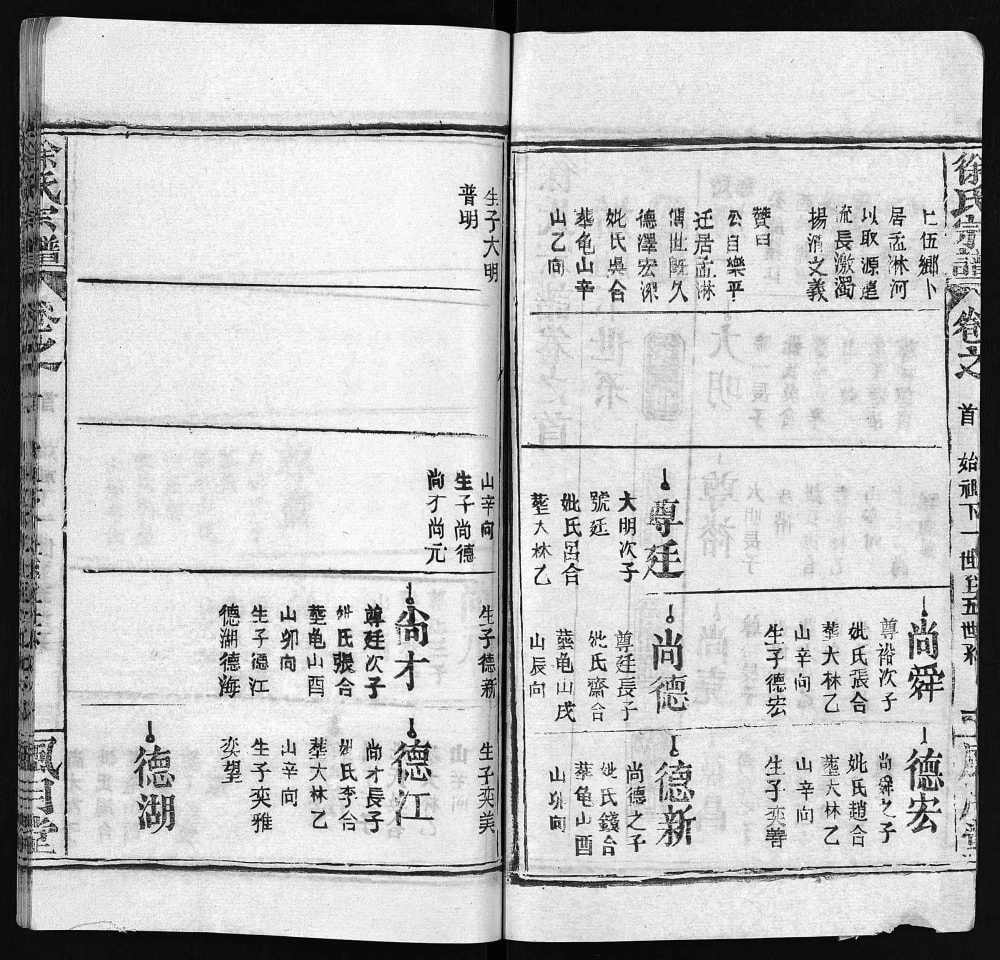 徐氏宗譜
卷之
首
始祖下一世至五世系
上伍鄉卜
居孟淋河
以取源遠
流長激濁
揚清之義
贊曰
公自樂平
迁居孟淋
傳世既久
德澤宏深
妣氏吳合
塟龜山辛
山乙向
尊廷
大明次子
號廷
妣氏呂合
塟大林乙
尚舜
尊裕次子
妣氏張合
塟大林乙
山辛向
生子德宏
尚德
尊廷長子
妣氏齋合
塟龜山戌
山辰向
德宏
尚舜之子
妣氏趙合
塟大林乙
山辛向
生子奕善
德新
尚德之子
妣氏錢合
塟龜山酉
山卯向
生子大明
普明
山辛向
生子尚德
尚才尚元
生子德新
尚才
尊廷次子
妣氏張合
塟龜山酉
山卯向
生子德江
德湖德海
生子奕美
德江
尚才長子
妣氏李合
塟大林乙
山辛向
生子奕雅
奕望
德湖
徐氏宗譜
卷之